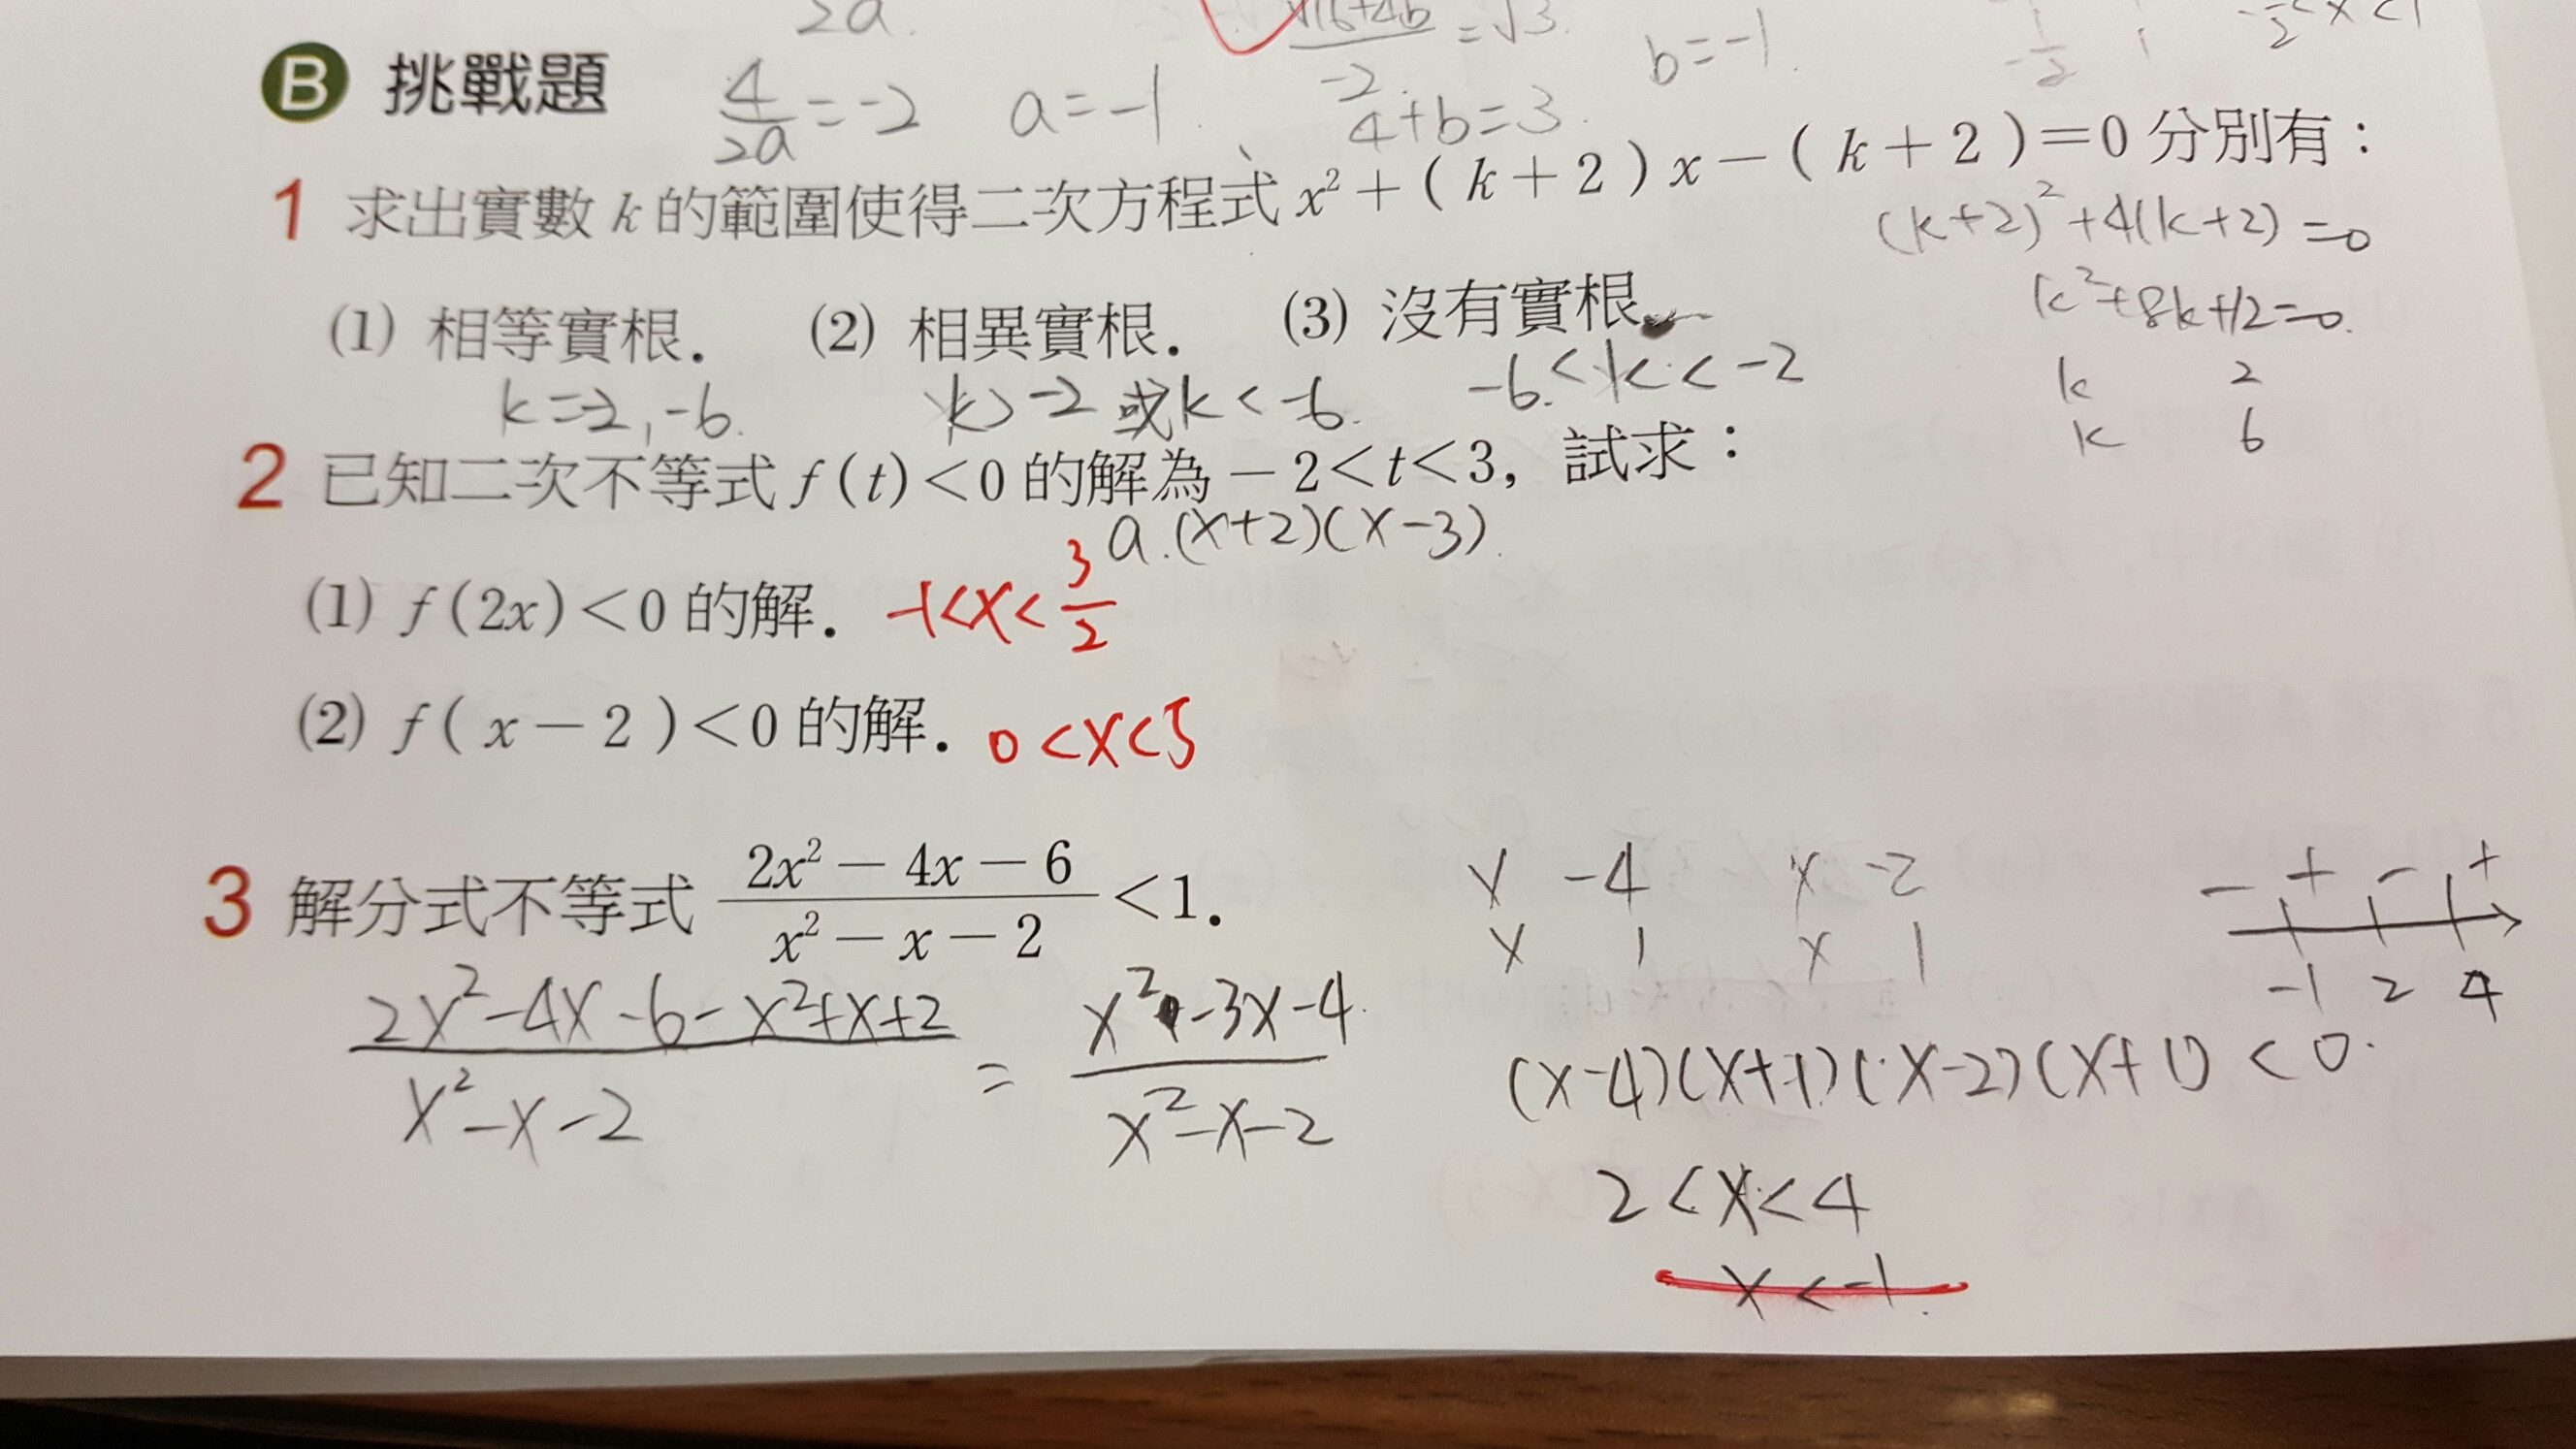 2a.
√16+4b / -2 = √3.
b=-1.
-1/2 1
-1/2<x<1
B 挑戰題
4/2a = -2 a=-1.
4+b=3.
1 求出實數 k 的範圍使得二次方程式 x²+(k+2)x-(k+2)=0 分別有:
(k+2)²+4(k+2)=0
k²+8k+12=0.
k 2
k 6
(1) 相等實根. (2) 相異實根. (3) 沒有實根.
k=-2,-6. k>-2 或 k<-6. -6<k<-2
2 已知二次不等式 f(t)<0 的解為 -2<t<3, 試求:
a.(x+2)(x-3).
(1) f(2x)<0 的解. -1<x<3/2
(2) f(x-2)<0 的解. 0<x<5
3 解分式不等式 2x²-4x-6 / x²-x-2 <1.
x -4 x -2
x 1 x 1
- + - +
-1 2 4
2x²-4x-6-x²+x+2 / x²-x-2 = x²-3x-4 / x²-x-2
(x-4)(x+1)(x-2)(x+1)<0.
2<x<4
x<-1.